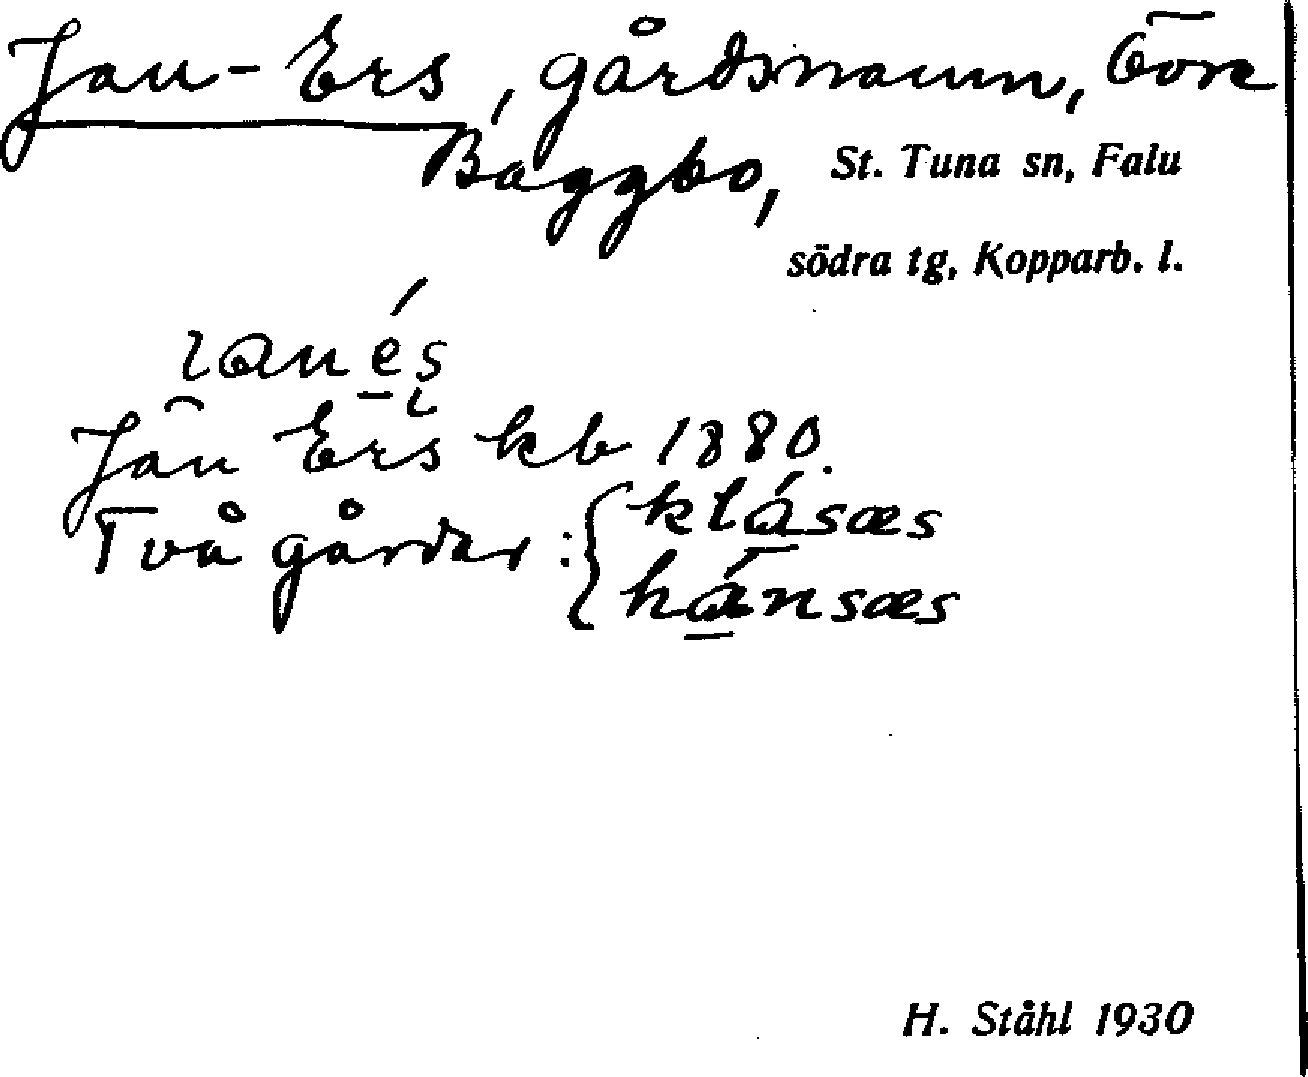 Jan-Ers, gårdsnamn, Övre
Baggbo, St. Tuna sn, Falu
södra tg, Kopparb. l.
Jan Ers kb 1880.
Två gårdar: klásæs
hánsæs
H. Ståhl 1930